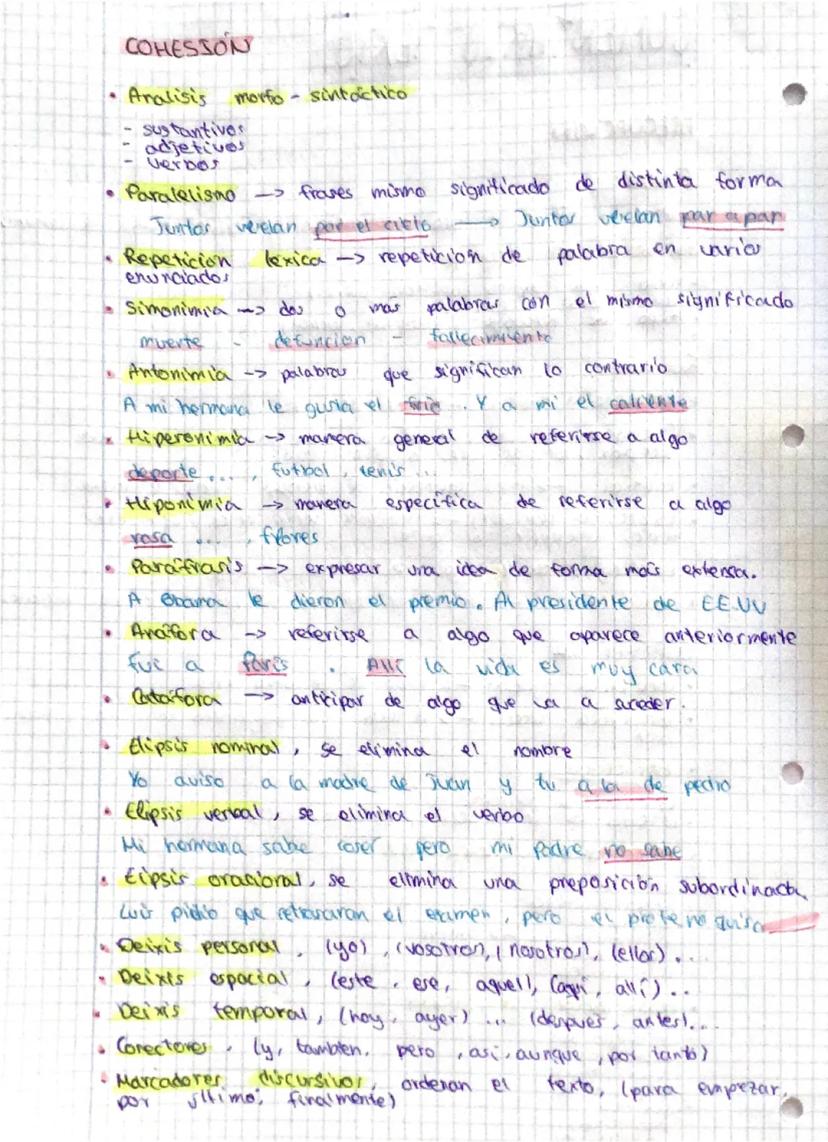 COHESSIÓN
• Analisis morfo - sintáctico
- sustantivos
- adjetivos
- verbos
• Paralelismo -> frases mismo significado de distinta forma
Juntos vuelan por el cielo -> Juntos vuelan par a par
• Repeticion lexica -> repeticion de palabra en varios
enunciados
• Simonimia -> dos o mas palabras con el mismo significado
muerte - defuncion - fallecimiento
• Antonimia -> palabras que significan lo contrario
A mi hermana le gusta el frio. Y a mi el caliente
• Hiperonimia -> manera general de referirse a algo
deporte ..., futbol, tenis ...
• Hiponimia -> manera específica de referirse a algo
rosa ..., flores
• Paráfrasis -> expresar una idea de forma más extensa.
A Obama le dieron el premio. Al presidente de EE.UU
• Anáfora -> referirse a algo que aparece anteriormente
fui a París. Allí la vida es muy cara
• Catáfora -> anticipar de algo que va a suceder.
• Elipsis nominal, se elimina el nombre
Yo aviso a la madre de Juan y tu a la de pedro
• Elipsis verbal, se elimina el verbo
Mi hermana sabe coser pero mi padre no sabe
• Elipsis orasional, se elimina una preposición subordinada
Luis pidio que retrasaran el examen, pero el profe no quiso
• Deixis personal, (yo), (vosotros), (nosotros), (ellos)...
• Deixis espacial, (este, ese, aquel), (aquí, allí)..
• Deixis temporal, (hoy, ayer) ... (despues, antes)...
• Conectores, (y, tambien, pero, asi, aunque, por tanto)
• Marcadores discursivos, ordenan el texto, (para empezar,
por último, finalmente)